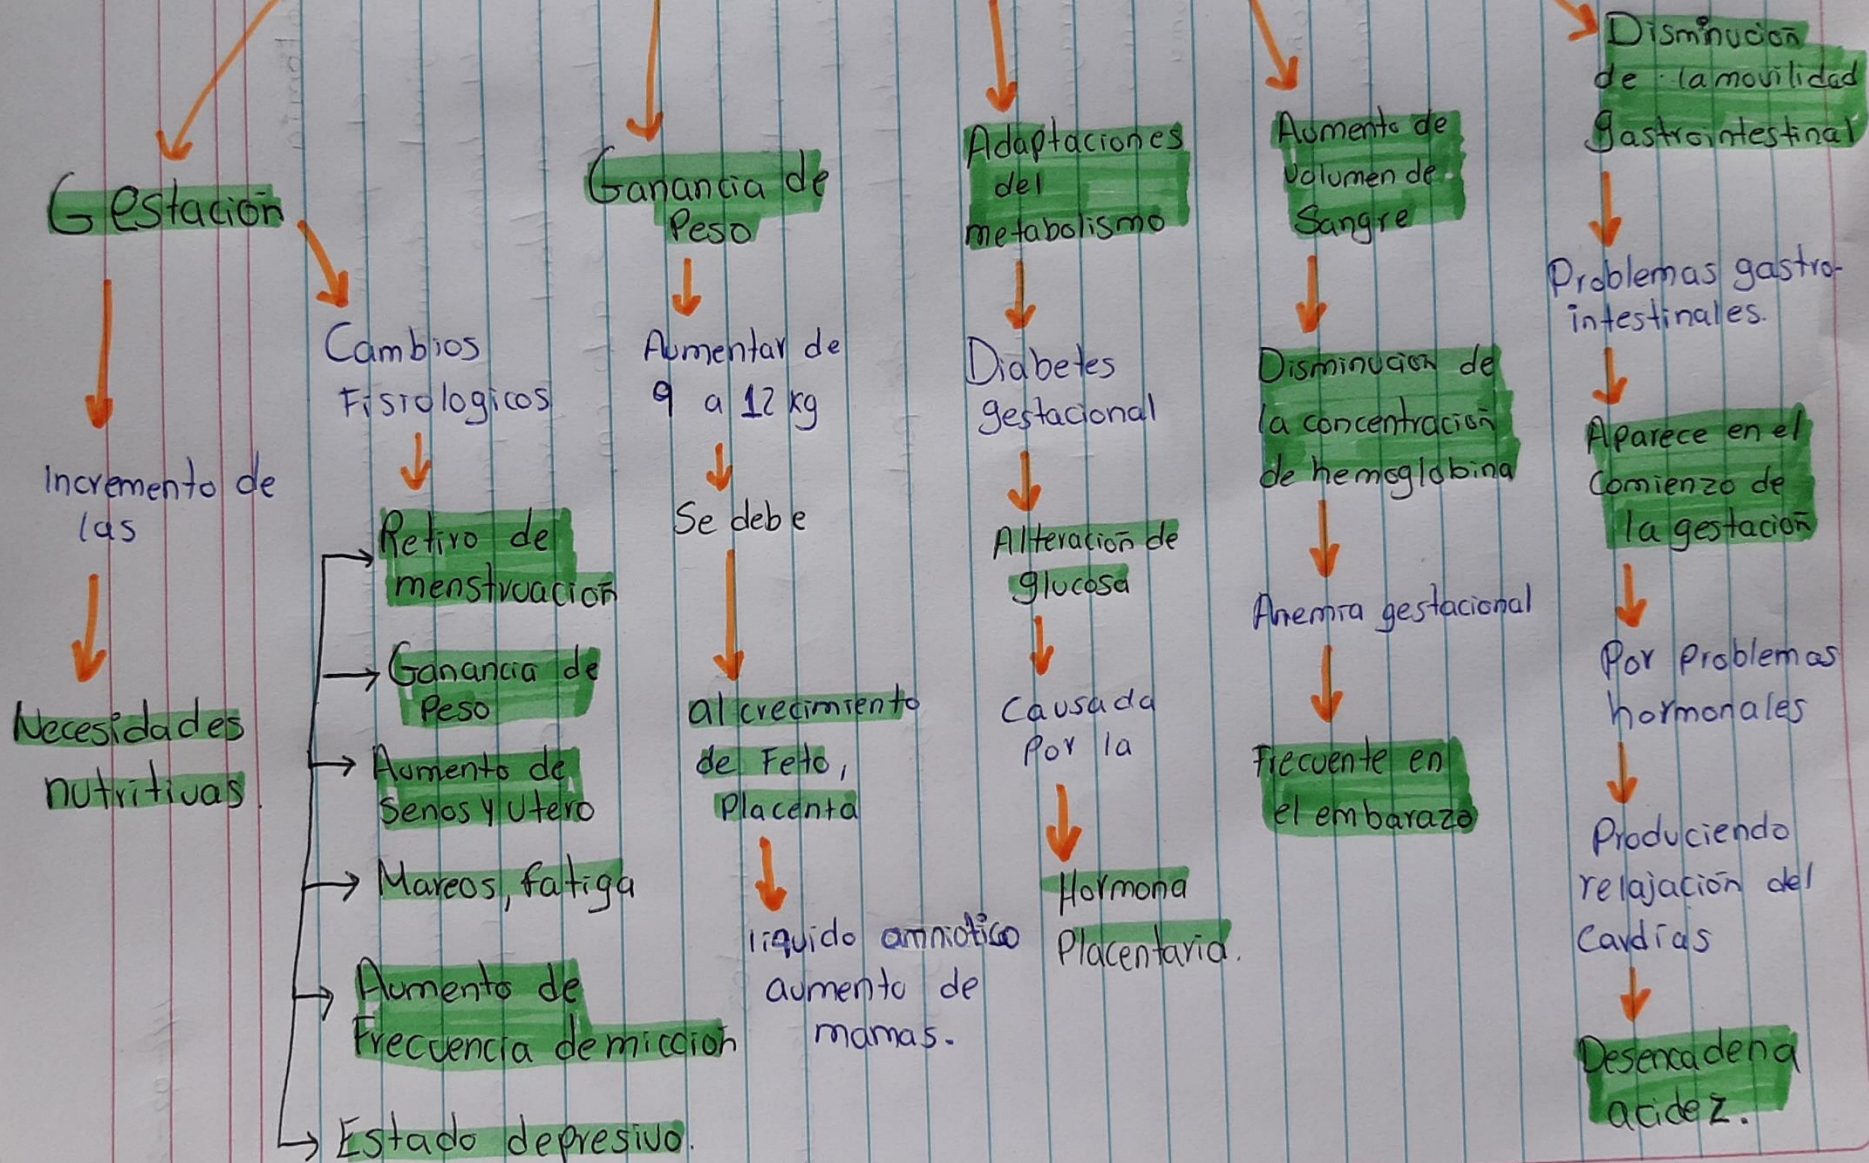 Gestación
Incremento de
las
Necesidades
nutritivas.
Cambios
Fisiologicos
Retiro de
menstruación
Ganancia de
Peso
Aumento de
Senos y utero
Mareos, fatiga
Aumento de
Frecuencia de micción
Estado depresivo.
Ganancia de
Peso
Aumentar de
9 a 12 kg
Se debe
al crecimiento
de Feto,
Placenta
liquido amniotico
aumento de
mamas.
Adaptaciones
del
metabolismo
Diabetes
gestacional
Alteración de
glucosa
Causada
Por la
Hormona
Placentaria.
Aumento de
Volumen de
Sangre
Disminucion de
la concentración
de hemoglobina
Anemia gestacional
Frecuente en
el embarazo
Disminución
de la movilidad
gastrointestinal
Problemas gastro-
intestinales.
Aparece en el
Comienzo de
la gestación
Por Problemas
hormonales
Produciendo
relajación del
Cardias
Desencadena
acidez.